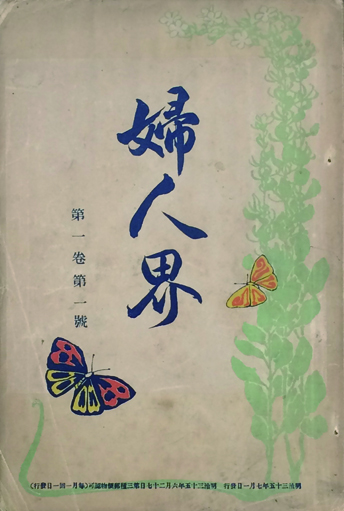 婦人界
第一卷第一號
明治三十五年七月一日發行 明治三十五年六月二十七日第三種郵便物認可(毎月一回一日發行)